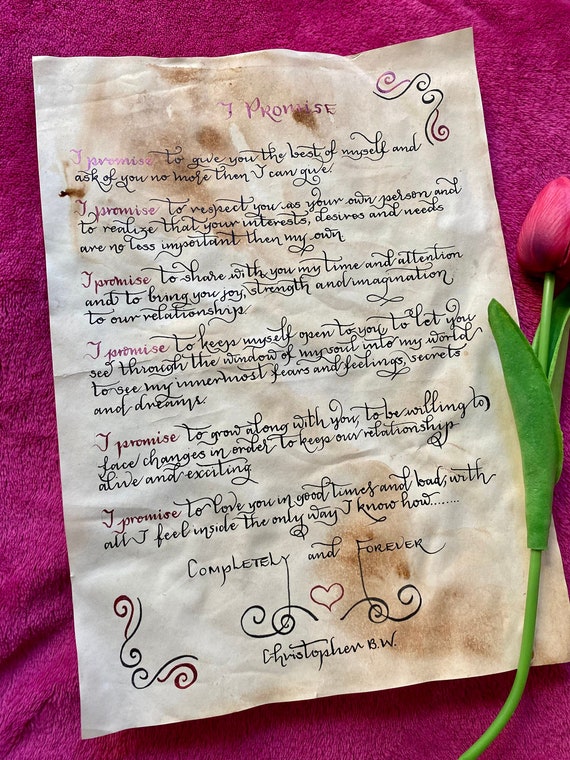 I Promise
I promise to give you the best of myself and
ask of you no more then I can give.
I promise to respect you as your own person and
to realize that your interests, desires and needs
are no less important then my own
I promise to share with you my time and attention
and to bring you joy, strength and imagination
to our relationship.
I promise to keep myself open to you, to let you
see through the window of my soul into my world
to see my innermost fears and feelings, secrets
and dreams.
I promise to grow along with you, to be willing to
face changes in order to keep our relationship
alive and exciting
I promise to love you in good times and bad, with
all I feel inside the only way I know how........
Completely and Forever
Christopher B.W.